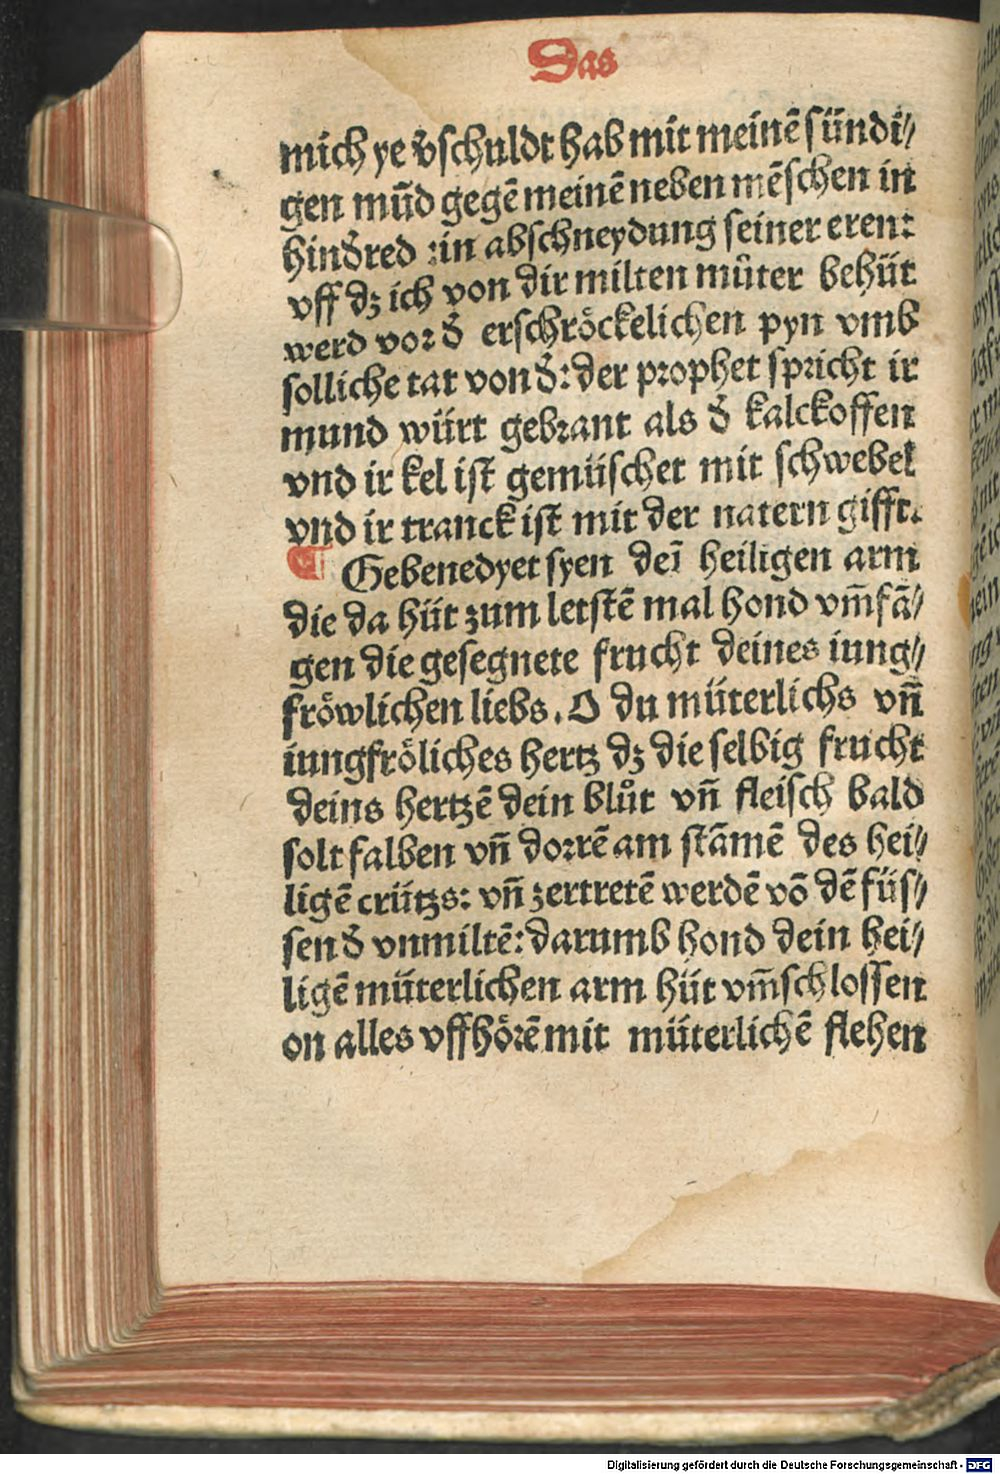 Das
mich ye v̄schuldt hab mit meinē sündi⸗
gen mūd gegē meinē neben mēschen in
hinđred :in abschneydung seiner eren:
vff dʒ ich von dir milten můter behüt
werd vor đ erschröckelichen pyn vmb
solliche tat von đ: der prophet spricht ir
mund würt gebrant als đ kalckoffen
vnd ir kel ist gemüschet mit schwebel
vnd ir tranck ist mit der natern gifft.
¶ Gebenedyet syen deī heiligen arm
die da hüt zum letstē mal hond vm̄fā⸗
gen die gesegnete frucht deines iung⸗
fröwlichen liebs. O du müterlichs vn̄
iungfröliches hertz dʒ die selbig frucht
deins hertzē dein blůt vn̄ fleisch bald
solt falben vn̄ dorrē am stāmē des hei⸗
ligē crützs: vn̄ zertretē werdē vō dē füs⸗
sen đ vnmiltē: darumb hond dein hei⸗
ligē müterlichen arm hüt vm̄schlossen
on alles vffhörē mit müterlichē flehen
Digitalisierung gefördert durch die Deutsche Forschungsgemeinschaft - DFG